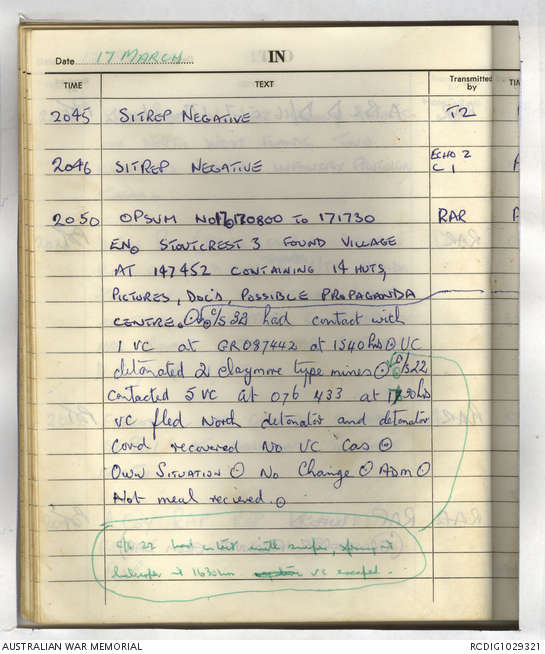 Date 17 MARCH IN
TIME TEXT Transmitted by TI
2045 SITREP NEGATIVE T2
2046 SITREP NEGATIVE ECHO 2 C 1
2050 OPSUM No 170800 TO 171730 RAR
EN. STOUTCREST 3 FOUND VILLAGE
AT 147452 CONTAINING 14 HUTS,
PICTURES, DOC'S, POSSIBLE PROPAGANDA
CENTRE. C/S 32 had contact with
1 VC at GR087442 at 1540 hrs VC
detonated 2 claymore type mines C/S 22
contacted 5 VC at 076 433 at 1730 hrs
VC fled North detonator and detonator
Cord recovered No VC Cas
OWN SITUATION No Change ADM
Hot meal recieved.
C/S 22 had contact with sniper, at
1630 hrs VC escaped.
AUSTRALIAN WAR MEMORIAL RCDIG1029321